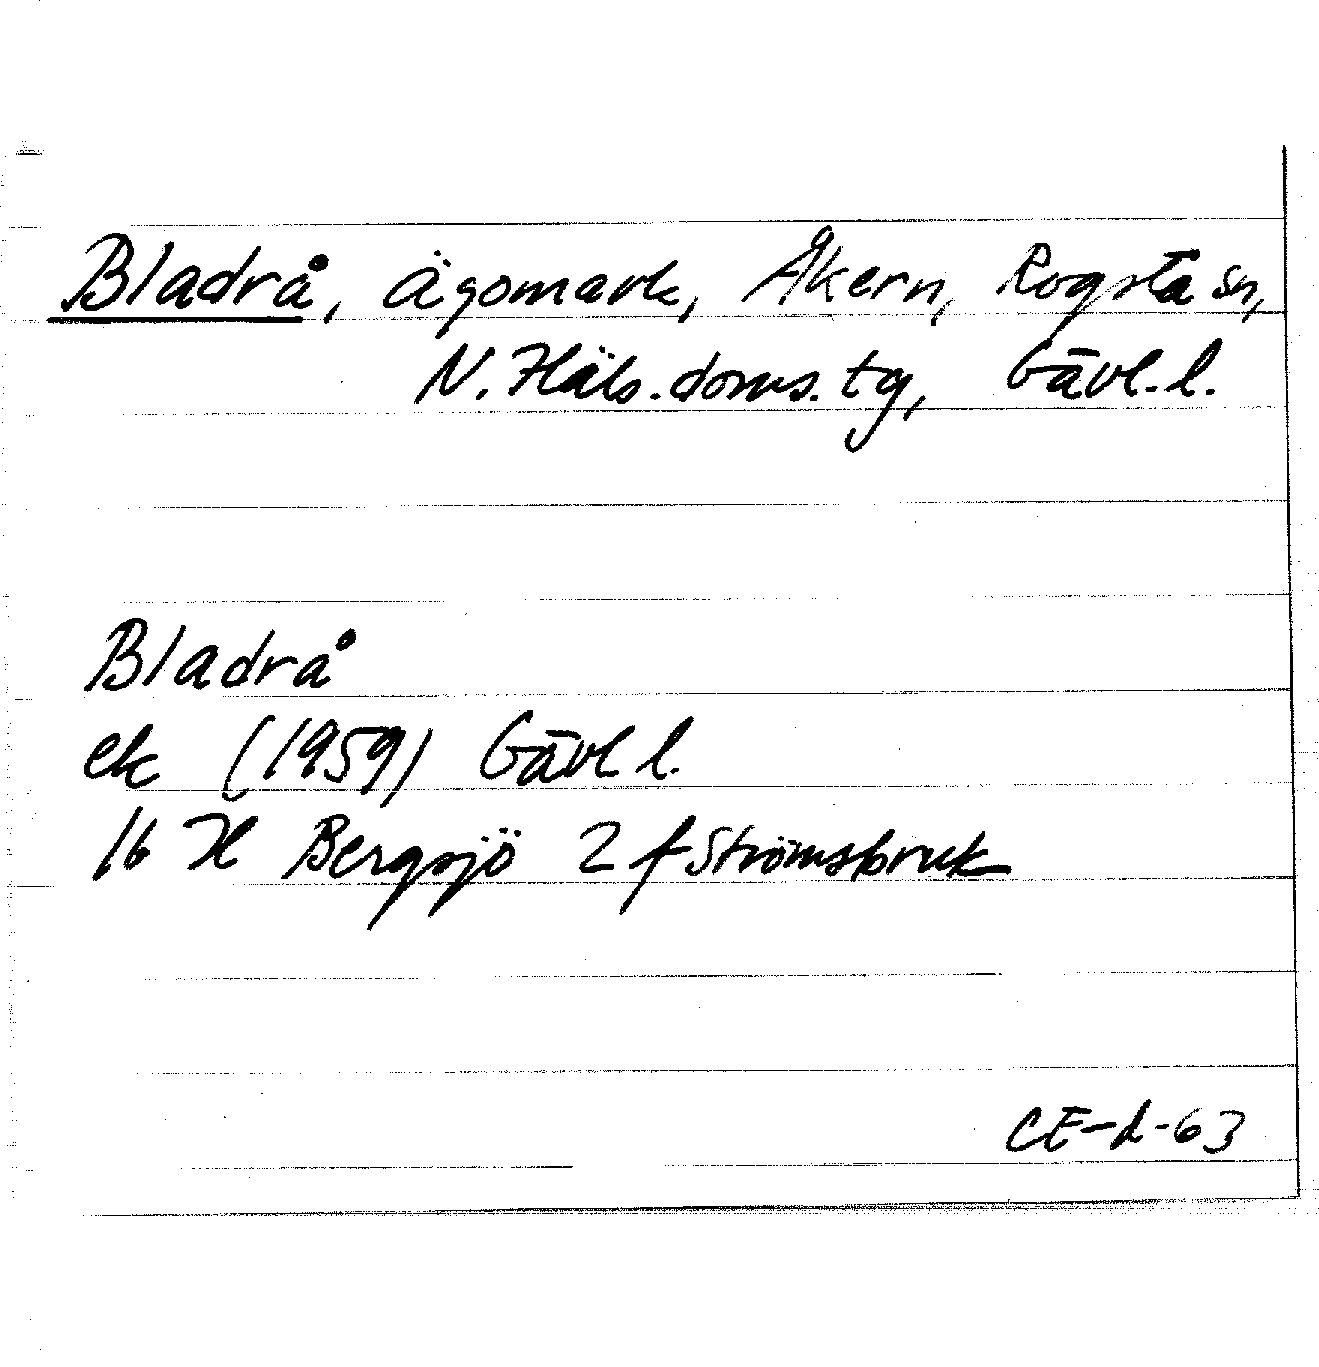 Bladrå, ägomark, Åkern, Rogsta sn,
N. Häls. doms. tg, Gävl. l.
Bladrå
ek (1959) Gävl. l.
16 H Bergsjö 2 f Strömsbruk
CE-d-63